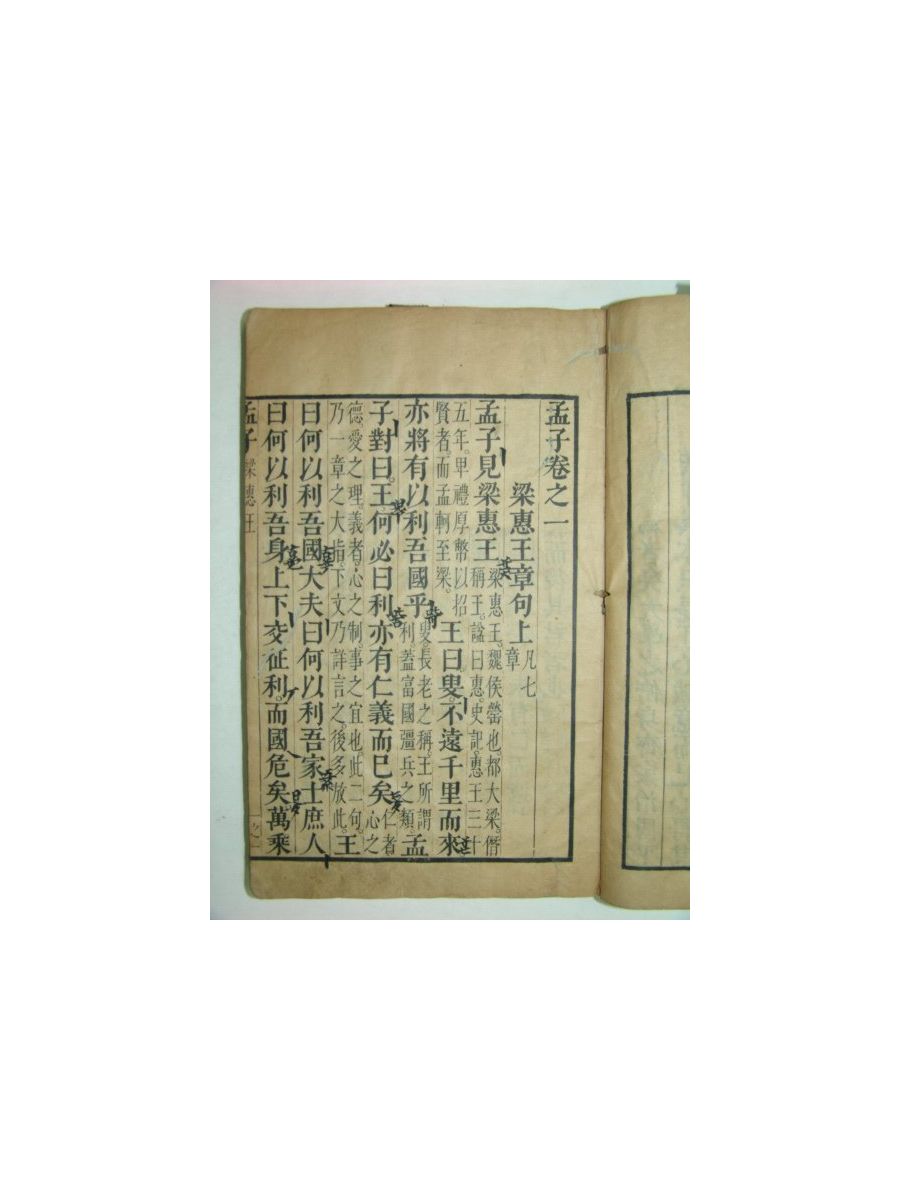 孟子卷之一
梁惠王章句上 凡七章
孟子見梁惠王 梁惠王。魏侯罃也。都大梁。僭稱王。諡曰惠史記。惠王三十
五年。卑禮厚幣以招賢者。而孟軻至梁。王曰。叟。不遠千里而來
亦將有以利吾國乎 叟。長老之稱。王所謂利。蓋富國彊兵之類。孟
子對曰。王何必曰利亦有仁義而已矣 仁者心之
德。愛之理。義者。心之制。事之宜也。此二句。乃一章之大指。下文乃詳言之。後多放此。王
曰何以利吾國大夫曰何以利吾家士庶人
曰何以利吾身上下交征利。而國危矣萬乘
孟子 梁惠王